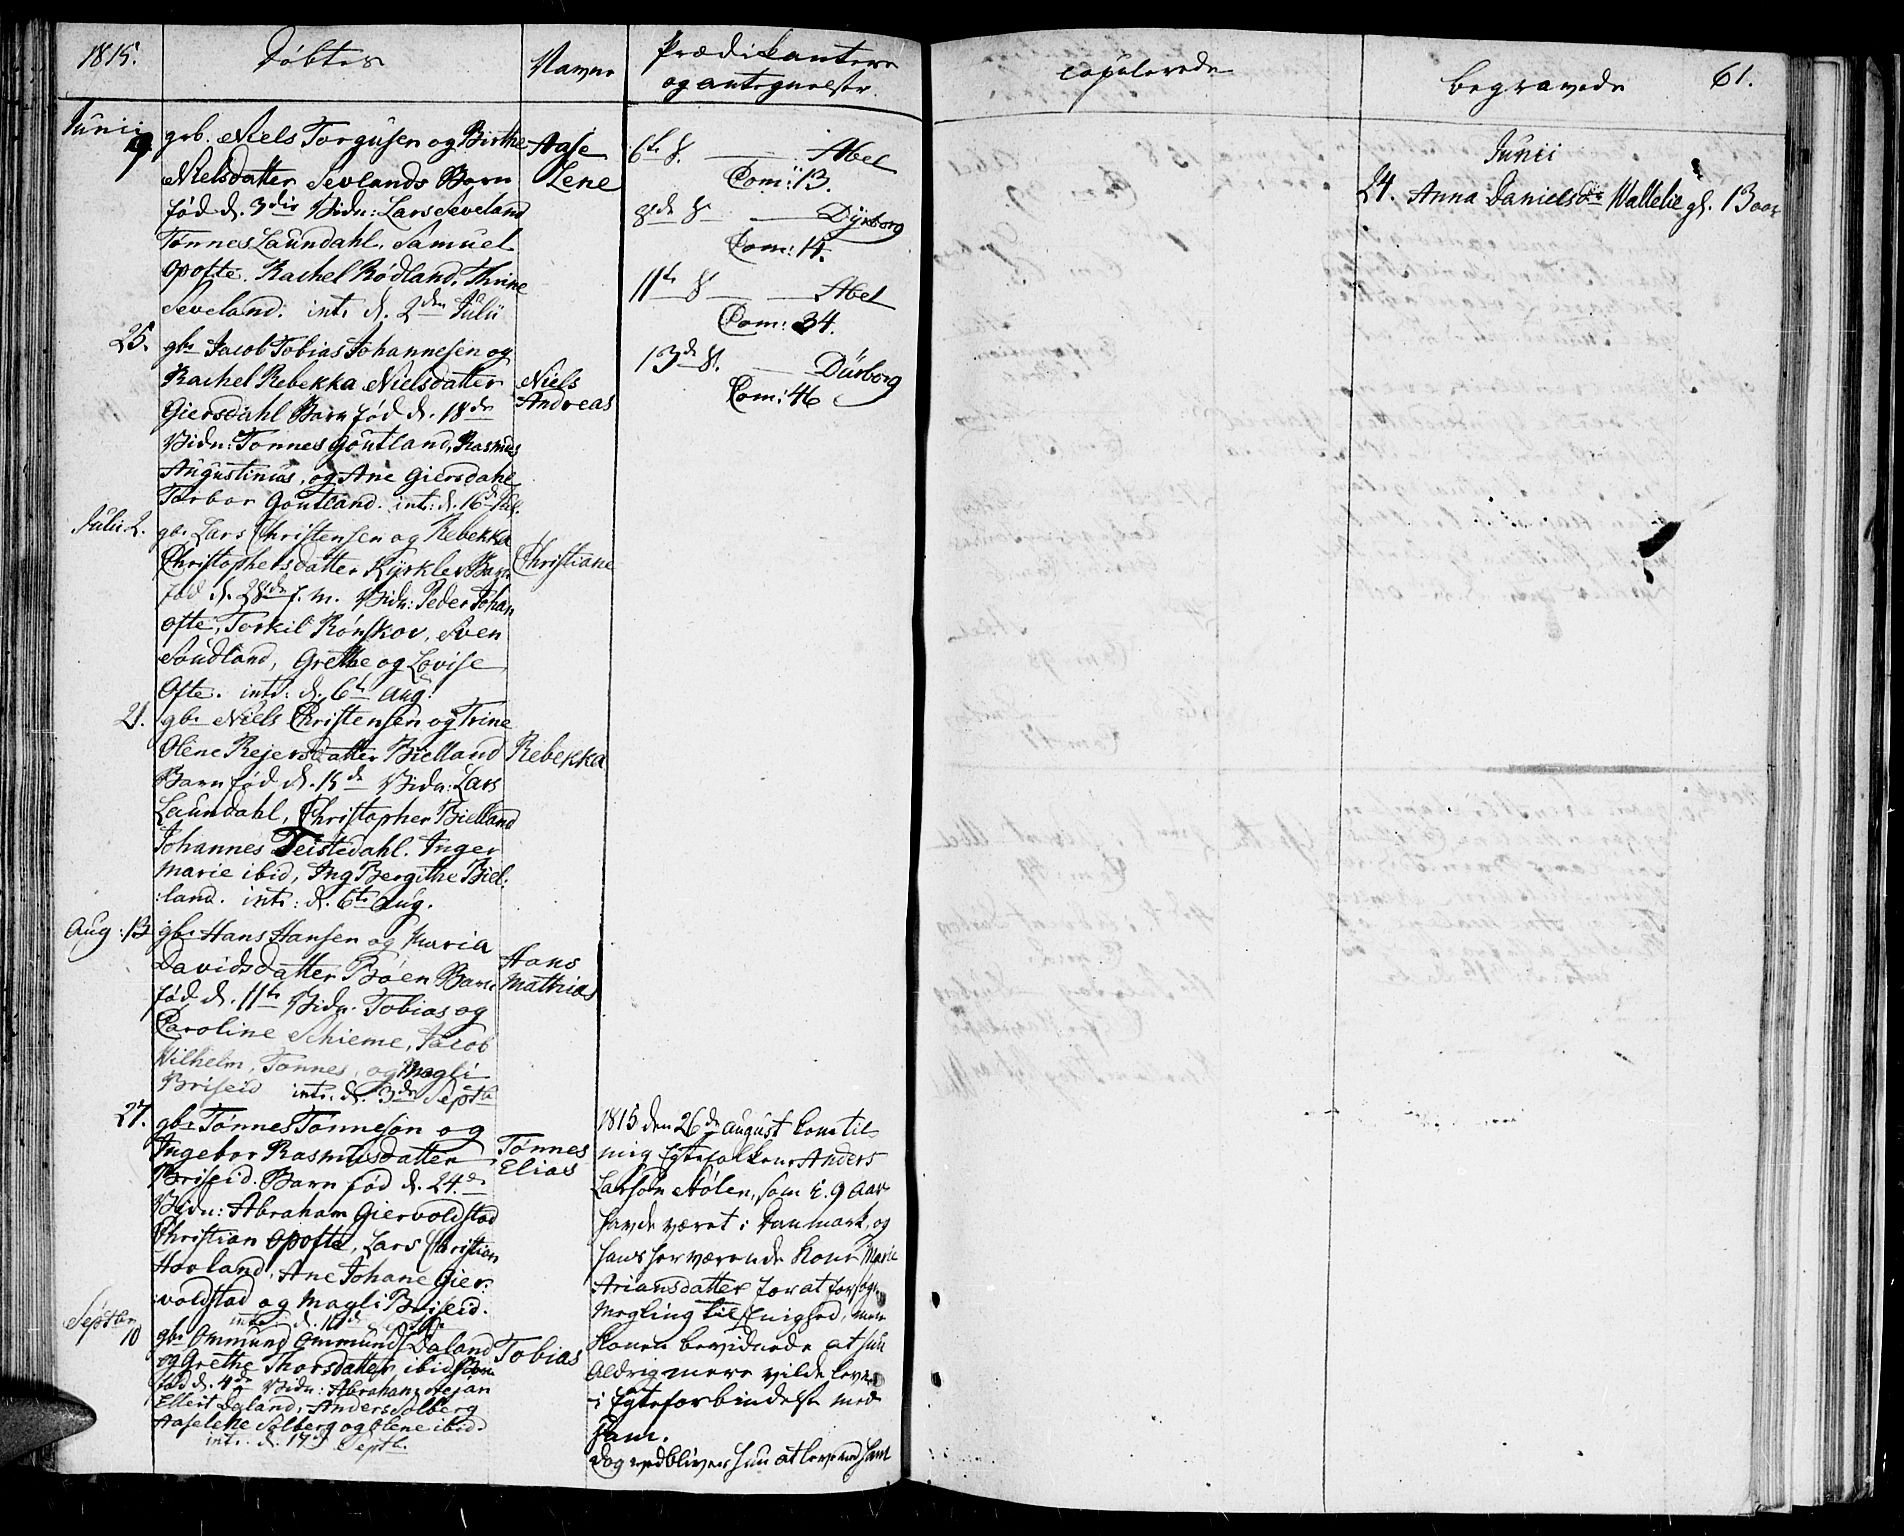 1815.
Døbte
Navne
Prædikantere
og antegnelser
copulerede
begravede
61.
Junii
9
geb. Niels Torgusen og Birthe
Nielsdatter Sevlands Barn
fød d. 3die Vidn: Lars Seveland
Tønnes Laundahl. Samuel
Opofte. Rachel Rødland, Thrine
Seveland. int: d. 2den Julii
Aase
Lene
25.
gbr Jacob Tobias Johannesen og
Rachel Rebekka Nielsdatter
Giersdahl Barn fød d. 18de
Vidn: Tønnes Goutland, Rasmus
Augustinius, og Ane Giersdahl
Torbor Goutland. int: d. 16d Jul.
Niels
Andreas
Julii 2.
gbr Lars Christensen og Rebekka
Christophersdatter Kyrklev Barn
fød d. 28de f. m. Vidn: Peder Johan
Ofte, Torkil Rønskov, Sven
Soudland, Grethe og Lovise
Ofte. int: d. 6te Aug:
Christiane
21.
gbr Niels Christensen og Trine
Olene Rejersdatter Bielland
Barn fød d. 15de Vidn: Lars
Laundahl, Christopher Bielland
Johannes Teistedahl. Inger
Marie ibid, Ing Bergithe Biel:
:land. int: d. 6te Aug.
Rebekka
Aug: 13
gbr Hans Hansen og Maria
Davidsdatter Bøen Barn
fød d. 11te Vidn. Tobias og
Caroline Schieme, Jacob
Wilhelm, Tønnes, og Magli
Briseid int: d. 3de Septb
Hans
Mathias
27.
gbr Tønnes Tønneson og
Ingebor Rasmusdatter
Briseid. Barn fød d. 24.de
Vidn: Abraham Giervoldstad
Christian Opofte, Lars Christian
Hovland, Ane Johane Gier:
:voldstad og Magli Briseid.
Tønnes
Elias
Septbr
10
gbr Ommund Ommunds Daland
og Grethe Thorsdatter ibid Barn
fød d. 4de Vidn: Abraham
Ellert Daland, Anders Solberg
Aaselene Solberg og Olene ibid.
int: d. 17d Septb.
Tobias
6te S. — Abel
Com: 13.
8de S — Dyrborg
Com: 14.
11te S — Abel
Com: 34.
13de S. — Dürborg
Com: 46
1815 den 26de August kom til
mig Egtefolkene Anders
Larsøn Stølen, som i 9 Aar
havde været i Danmark, og
hans herværende Kone Marie
Ariansdatter for at forsøge
Megling til Enighed, men
Konen bevidnede at hun
Aldrig mere vilde leve
i Egteforbindelse med
Ham.
Dog vedbliver hun at leve med ham
Junii
24. Anna Danielsdr Wattelie gl. 13 aar